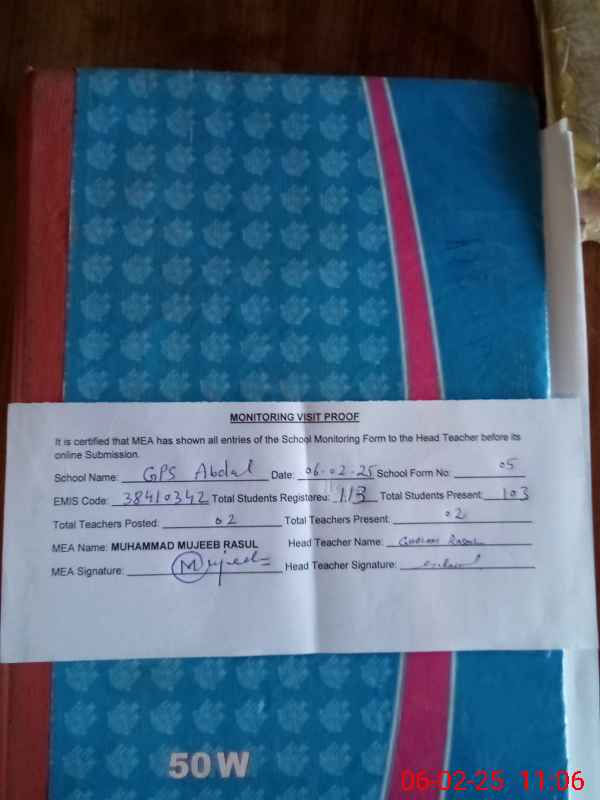 MONITORING VISIT PROOF
It is certified that MEA has shown all entries of the School Monitoring Form to the Head Teacher before its
online Submission.
School Name: GPS Abdal Date: 06-02-25 School Form No: 05
EMIS Code: 38410342 Total Students Registered: 113 Total Students Present: 103
Total Teachers Posted: 02 Total Teachers Present: 02
MEA Name: MUHAMMAD MUJEEB RASUL Head Teacher Name: Ghulam Rasul
MEA Signature: Mujeeb Head Teacher Signature:
50W
06-02-25 11:06